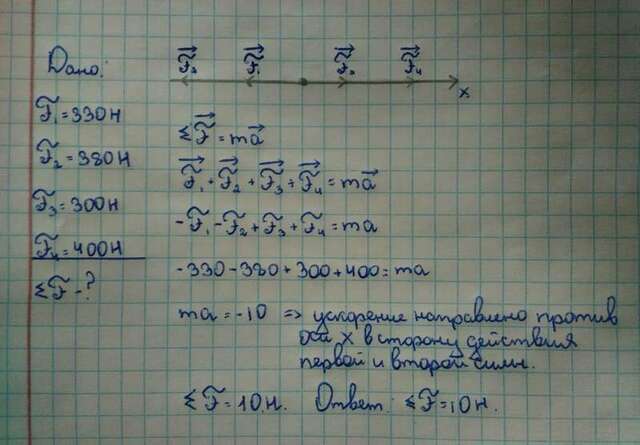 Дано:
F₁=330Н
F₂=380Н
F₃=300Н
F₄=400Н
ΣF-?
F₂ F₁ F₃ F₄
x
ΣF=ma
F₁+F₂+F₃+F₄=ma
-F₁-F₂+F₃+F₄=ma
-330-380+300+400=ma
ma=-10 => ускорение направлено против
оси x в сторону действия
первой и второй силы.
ΣF=10Н. Ответ: ΣF=10Н.